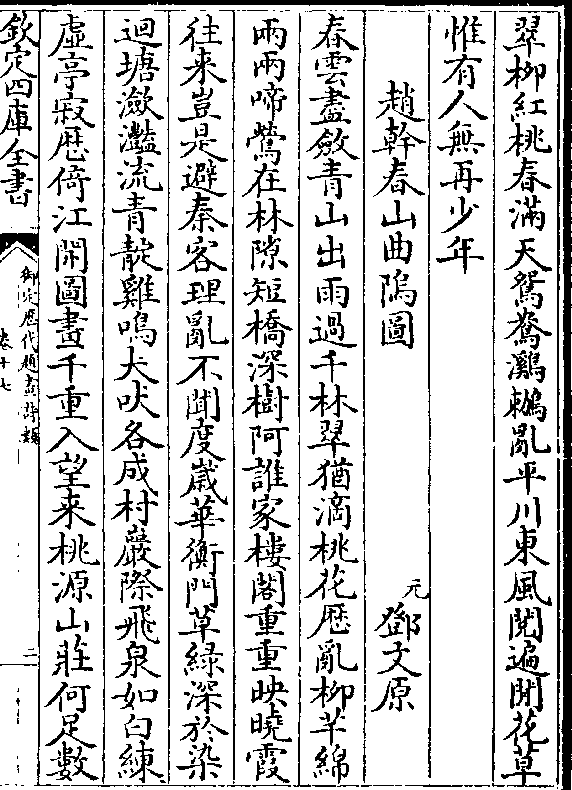 翠柳紅桃春滿天鴛鴦鸂鶒亂平川東風閱遍閒花草
惟有人無再少年
趙幹春山曲隖圖
元
鄧文原
春雲盡斂青山出雨過千林翠猶滴桃花厯亂柳芊綿
兩兩啼鶯在林隙短橋深樹阿誰家樓閣重重映曉霞
往來豈是避秦客理亂不聞度歲華衡門草緑深於染
迴塘瀲灩流青靛雞鳴犬吠各成村巖際飛泉如白練
虛亭寂厯倚江開圖畫千重入望来桃源山莊何足數
欽定四庫全書
御定歴代題畫詩類
卷十七
二